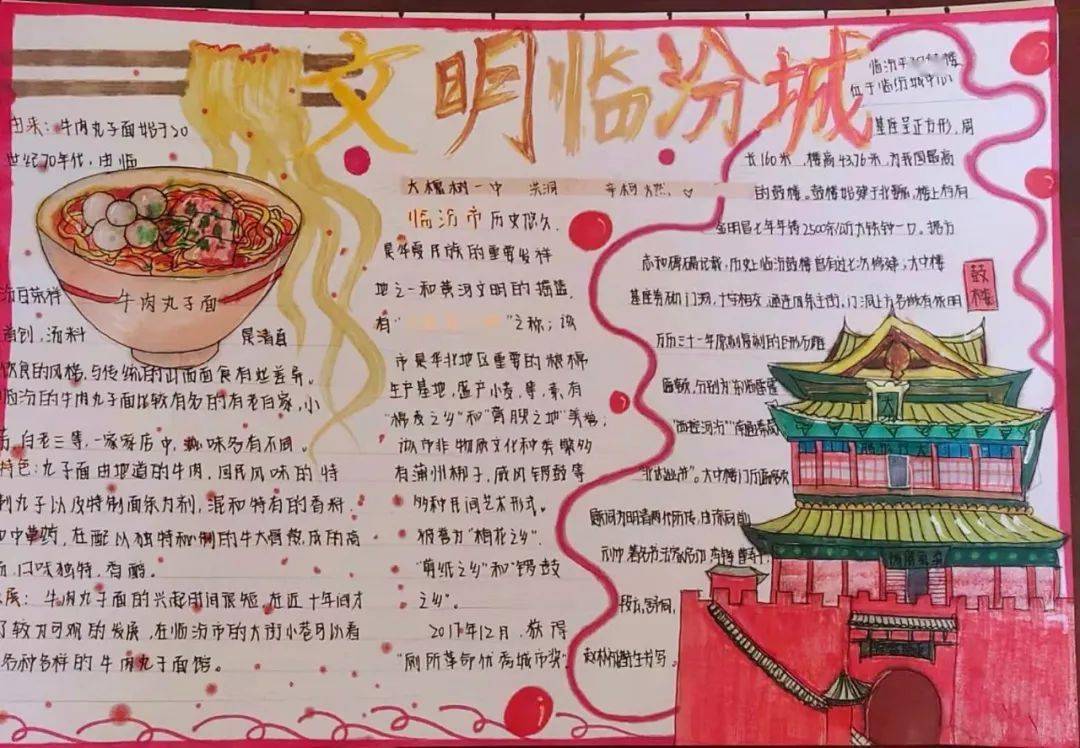 文明临汾城
由来：牛肉丸子面始于20
世纪70年代，由临
牛肉丸子面
汾百荣祥
首创，汤料
是清真
饮食的风格，与传统的山西面食有些差异。
临汾的牛肉丸子面比较有名的有老白家，小
白老三等，一家家店中，味各有不同。
特色：丸子面由地道的牛肉，回民风味的特
制丸子以及特制面条为剂，混和特有的香料
和中草药，在配以独特秘制的牛大骨熬成的高
口味独特，香醇。
发展：牛肉丸子面的兴起时间很短，在近十年间才
了较为可观的发展，在临汾市的大街小巷可以看
多种多样的牛肉丸子面馆。
大槐树一中 洪洞
临汾市历史悠久，
是华夏民族的重要发祥
地之一和黄河文明的摇篮，
有“ ”之称；该
市是华北地区重要的粮棉
生产基地，盛产小麦，等，素有
“棉麦之乡”和“膏腴之地”美誉；
该市非物质文化种类繁多
有蒲州梆子，威风锣鼓等
多种民间艺术形式。
被誉为“梅花之乡”．
“剪纸之乡”和“锣鼓
之乡”。
2017年12月，获得
“厕所革命优秀城市奖”
临汾平阳鼓楼
位于临汾城中心
基座呈正方形，周
长160米，楼高43.76米，为我国最高
的鼓楼。鼓楼始建于北魏，楼上存有
金明昌七年铸2500余公斤大铁钟一口。据方
志和碑碣记载，历史上临汾鼓楼自有过七次修建，大中楼
基座有砖门洞，十字相交，通连四条主街，门洞上方各嵌有依明
万历三十一年原制复制的巨形石雕
匾额，分别为“东临雷霍
“西控河汾”“南通秦蜀
“北达幽并”。大中楼
鼓楼